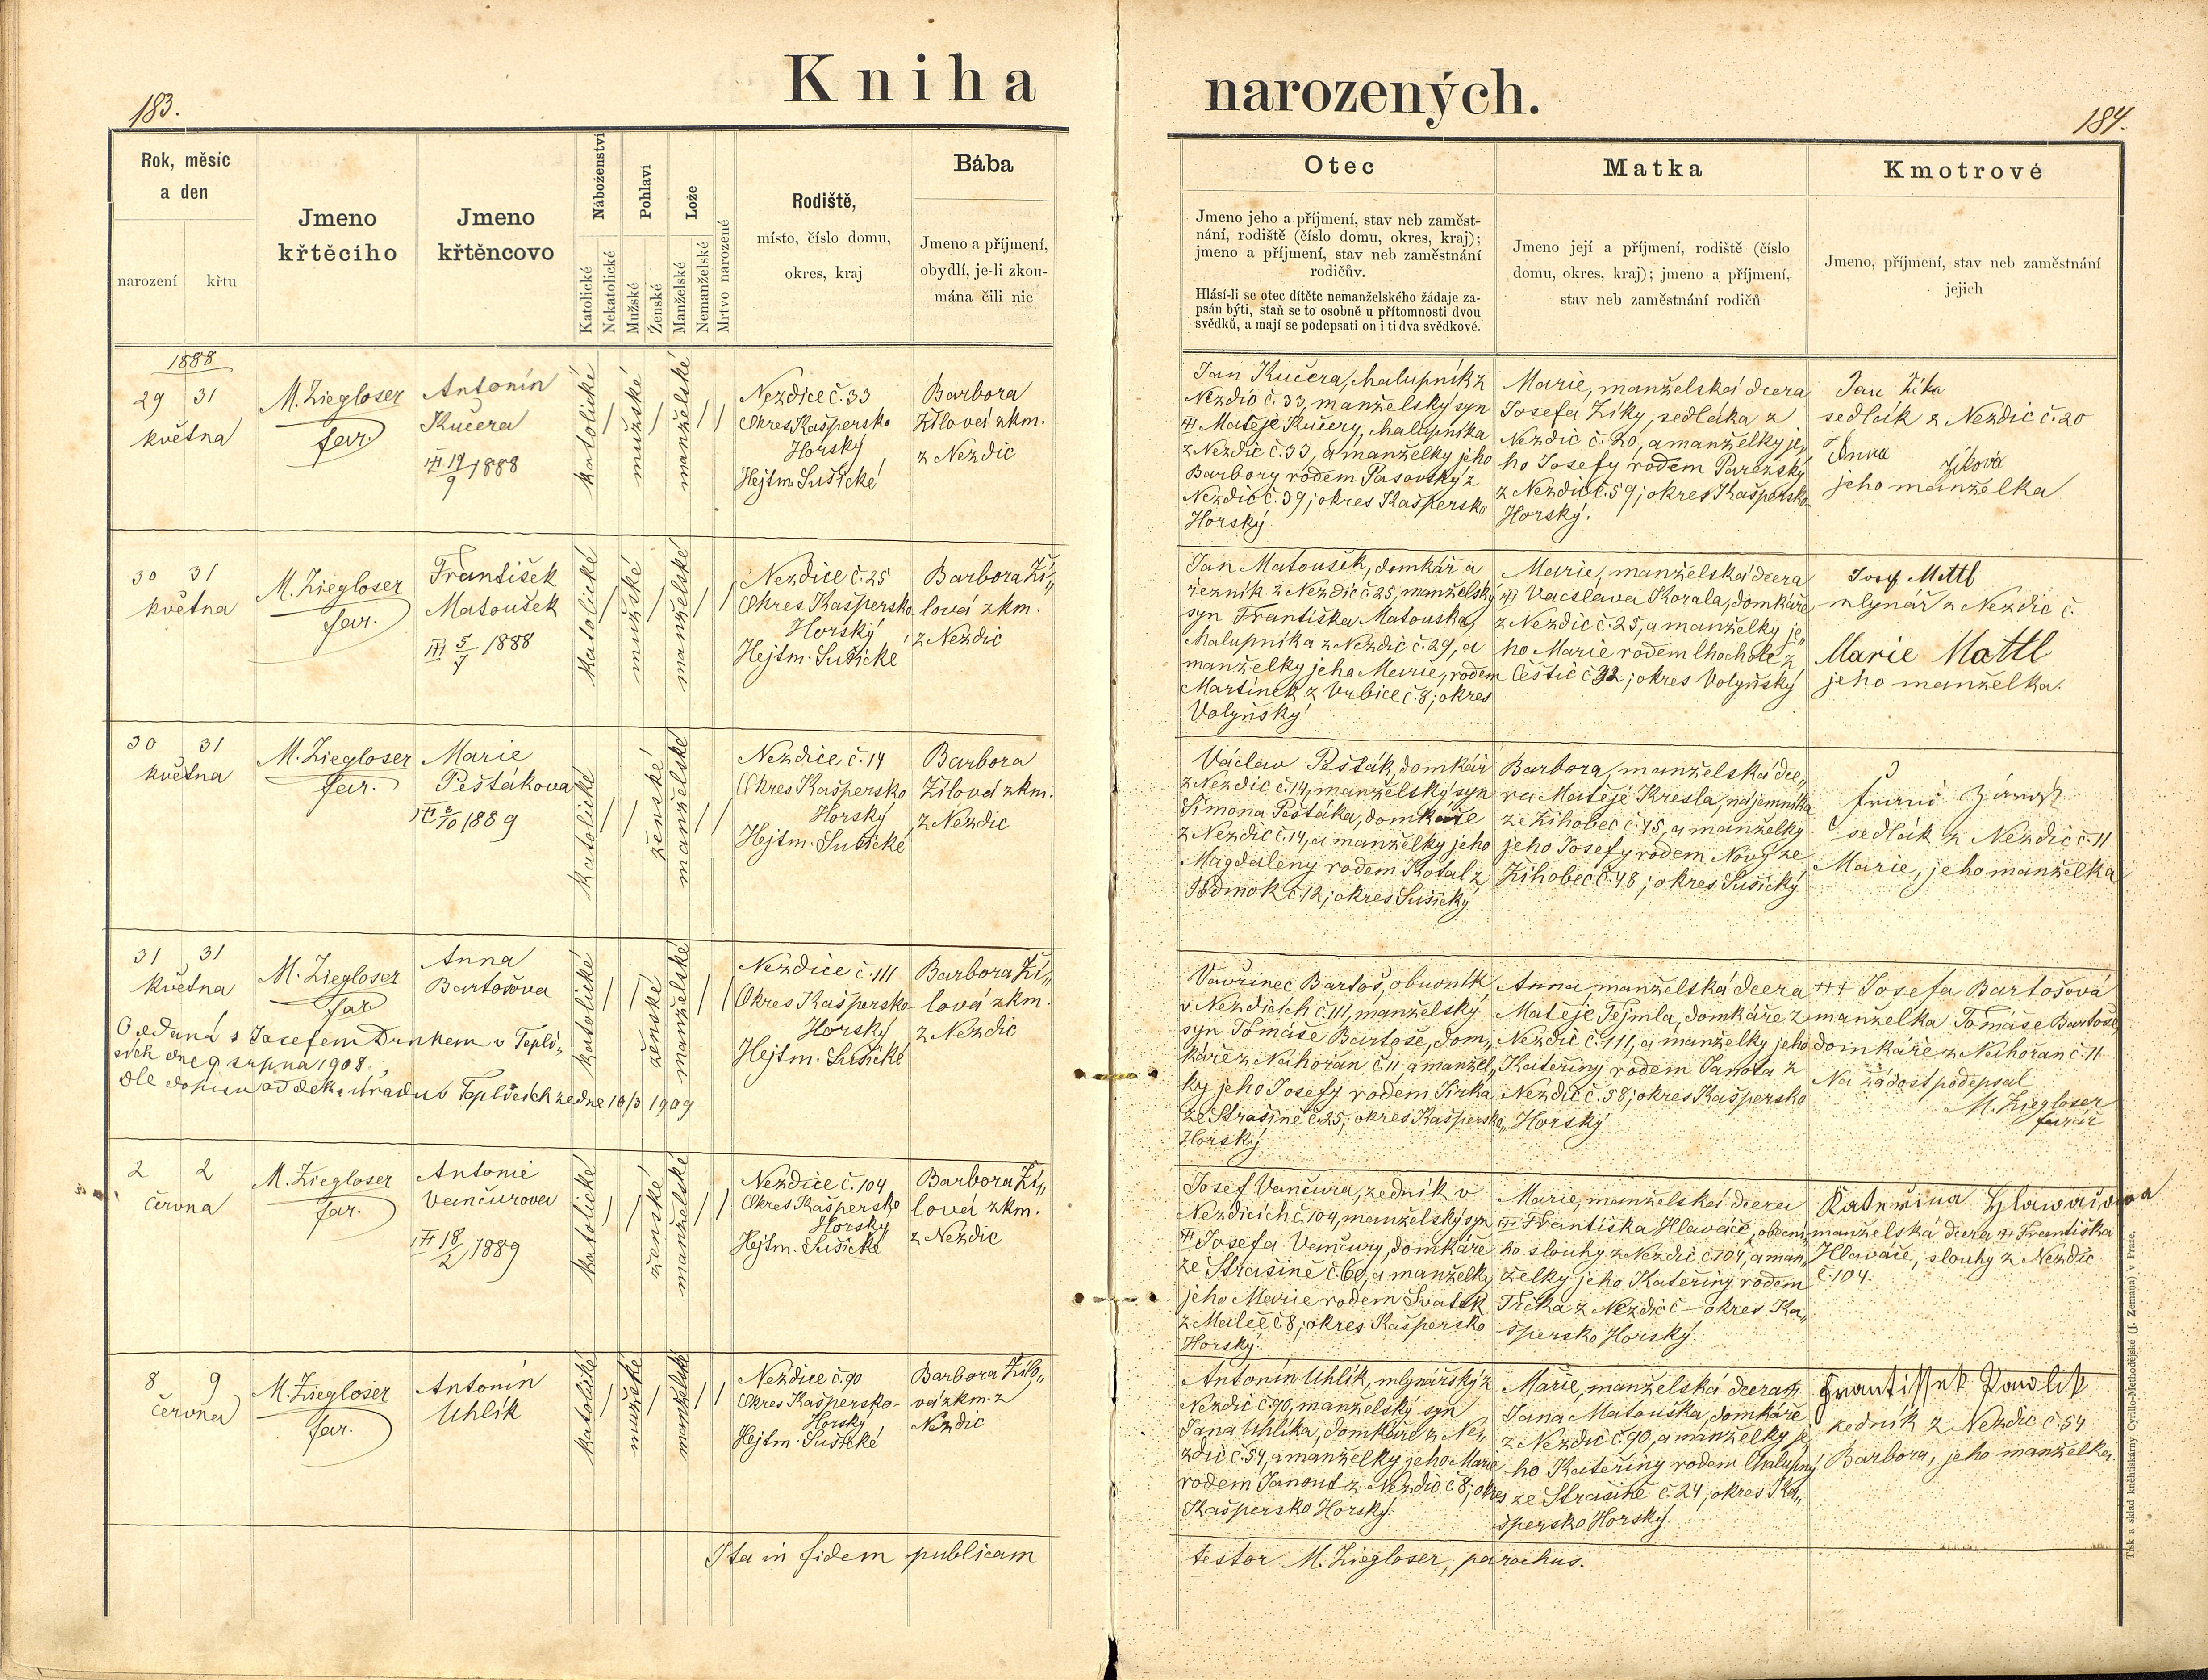 Kniha narozených.
183.
184.
Rok, měsíc
a den
narození
křtu
Jmeno
křtěcího
Jmeno
křtěncovo
Náboženství
Katolické
Nekatolické
Pohlaví
Mužské
Ženské
Lože
Manželské
Nemanželské
Mrtvo narozené
Rodiště,
místo, číslo domu,
okres, kraj
Bába
Jmeno a příjmení,
obydlí, je-li zkou-
mána čili nic
Otec
Jmeno jeho a příjmení, stav neb zaměst-
nání, rodiště (číslo domu, okres, kraj);
jmeno a příjmení, stav neb zaměstnání
rodičův.
Hlásí-li se otec dítěte nemanželského žádaje za-
psán býti, staň se to osobně u přítomnosti dvou
svědků, a mají se podepsati on i ti dva svědkové.
Matka
Jmeno její a příjmení, rodiště (číslo
domu, okres, kraj); jmeno a příjmení,
stav neb zaměstnání rodičů
Kmotrové
Jmeno, příjmení, stav neb zaměstnání
jejich
1888
29 31
května
M. Ziegloser
far.
Antonín
Kučera
19/9 1888
katolické
mužské
manželské
Nezdice č. 33
Okres Kašpersko
Horský
Hejtm. Sušické
Barbora
Žílová zkm.
z Nezdic
Jan Kučera, chalupník z
Nezdic č. 33, manželský syn
Matěje Kučery, chalupníka
z Nezdic č. 33, a manželky jeho
Barbory rodem Pasovský z
Nezdic č. 39; okres Kašpersko
Horský
Marie, manželská dcera
Josefa Zíky, sedláka z
Nezdic č. 20, a manželky je„
ho Josefy rodem Pařezský
z Nezdic č. 59; okres Kašpersko-
Horský.
Jan Zíka
sedlák z Nezdic č. 20
Anna Zíková
jeho manželka
30 31
května
M. Ziegloser
far.
František
Matoušek
5/7 1888
katolické
mužské
manželské
Nezdice č. 25
Okres Kašpersko
Horský
Hejtm. Sušické
Barbora Ží„
lová zkm.
z Nezdic
Jan Matoušek, domkář a
řezník z Nezdic č. 25, manželský
syn Františka Matouška,
chalupníka z Nezdic č. 29, a
manželky jeho Marie, rodem
Martínek z Vrbice č. 8; okres
Volyňský
Marie, manželská dcera
Vacslava Korala, domkáře
z Nezdic č. 25, a manželky je„
ho Marie rodem Chochole z
Čestic č 32; okres Volyňský
Josef Mottl
mlynář z Nezdic č.
Marie Mottl
jeho manželka.
30 31
května
M. Ziegloser
far.
Marie
Pešťákova
3/10 1889
katolické
ženské
manželské
Nezdice č. 14
Okres Kašpersko
Horský
Hejtm. Sušické
Barbora
Žílová zkm.
z Nezdic
Václav Pešťák, domkář
z Nezdic č. 14, manželský syn
Šimona Pešťáka, domkáře
z Nezdic č. 14, a manželky jeho
Magdaleny rodem Kotal z
Podmok č. 12; okres Sušický
Barbora, manželská dce„
ra Matěje Kresla, nájemníka
ze Žihobec č. 15, a manželky
jeho Josefy rodem Nový ze
Žihobec č. 48; okres Sušický
sedlák z Nezdic č. 11
Marie, jeho manželka
31 31
května
M. Ziegloser
far
Anna
Bartošova
Oddaná s Josefem Drnkem v Tepli„
cích dne 9 srpna 1908.
dle dopisu od dek. úřadu v Teplicích ze dne 10/3 1909
katolické
ženské
manželské
Nezdice č. 111
Okres Kašpersko-
Horský
Hejtm. Sušické
Barbora Ží„
lová zkm.
z Nezdic
Vavřinec Bartoš, obuvník
v Nezdicích č. 111, manželský
syn Tomáše Bartoše, dom„
káře z Nahořan č. 11, a manžel„
ky jeho Josefy rodem Jirka
ze Strašině č. 25; okres Kašpersko„
Horský
Anna, manželská dcera
Matěje Tejmla, domkáře z
Nezdic č. 111, a manželky jeho
Kateřiny rodem Janota z
Nezdic č. 58; okres Kašpersko
Horský
+++ Josefa Bartošová
manželka Tomáše Bartoše
domkáře z Nahořan č. 11
Na žádost podepsal
M. Ziegloser
farář
2 2
června
M. Ziegloser
far.
Antonie
Vančurova
18/2 1889
katolické
ženské
manželské
Nezdice č. 104
Okres Kašpersko
Horský
Hejtm. Sušické
Barbora Ží„
lová zkm.
z Nezdic
Josef Vančura, zedník v
Nezdicích č. 104, manželský syn
Josefa Vančury, domkáře
ze Strašině č. 60, a manželky
jeho Marie rodem Svatek
z Maleč č. 8; okres Kašpersko
Horský.
Marie, manželská dcera
Františka Hlaváče, obecní„
ho slouhy z Nezdic č. 104, a man„
želky jeho Kateřiny rodem
Trčka z Nezdic č – okres Ka„
špersko Horský.
Kateřina Hlawáčowa
manželská dcera Františka
Hlaváče, slouhy z Nezdic
č. 104.
8 9
června
M. Ziegloser
far.
Antonín
Uhlík
katolické
mužské
manželské
Nezdice č. 90
Okres Kašpersko-
Horský
Hejtm. Sušické
Barbora Žílo„
vá zkm. z
Nezdic
Antonín Uhlík, mlynářský z
Nezdic č. 90, manželský syn
Jana Uhlíka, domkáře z Ne„
zdic č. 54, a manželky jeho Marie
rodem Janout z Nezdic č. 8; okres
Kašpersko Horský.
Marie, manželská dcera
Jana Matouška, domkáře
z Nezdic č. 90, a manželky je„
ho Kateřiny rodem Chalupný
ze Strašině č. 24; okres Ka„
špersko Horský
Frantissek Pawlik
zedník z Nezdic č. 54
Barbora, jeho manželka.
Ita in fidem publicam testor M. Ziegloser, parochus.
Tisk a sklad knihtiskárny Cyrillo-Methodějské (J. Zeman) v Praze.